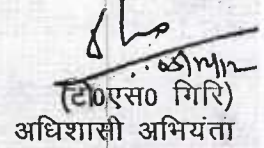 (टी०एस० गिरि)
अधिशासी अभियंता